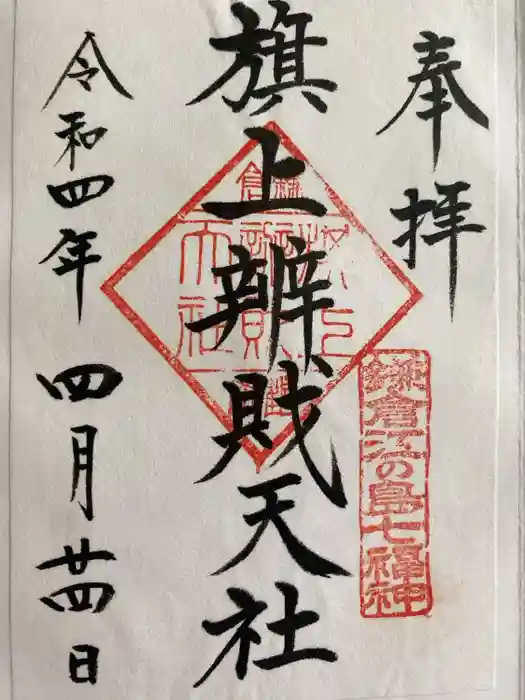 奉拝
鎌倉江の島七福神
旗上辨財天社
令和四年四月廿四日